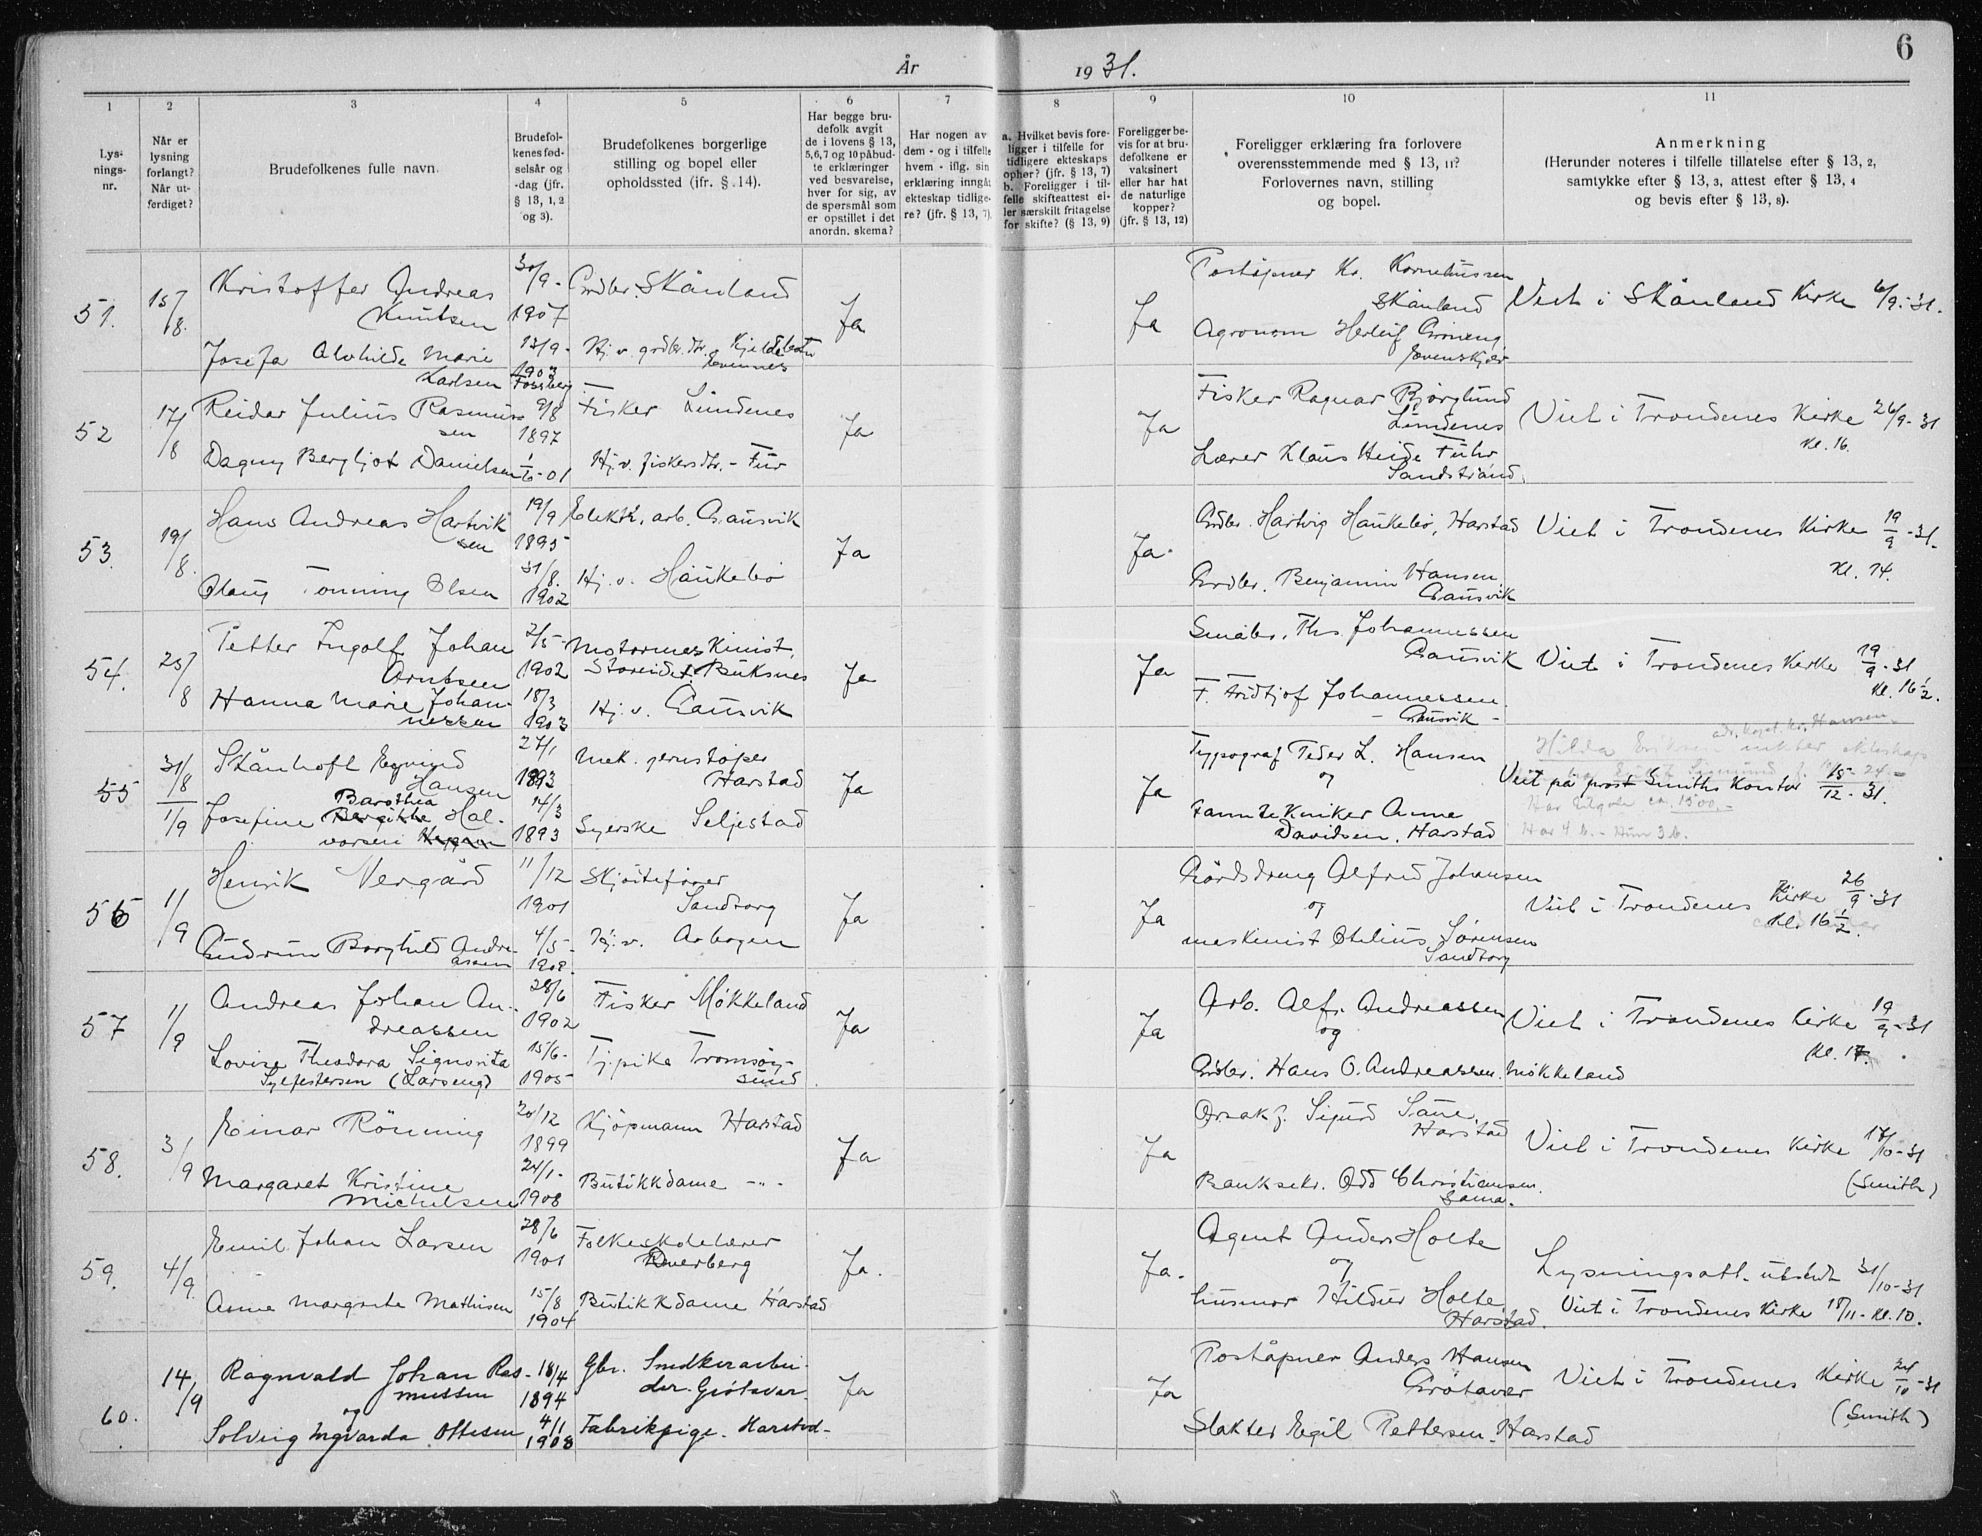 År 1931.
6
1
2
3
4
5
6
7
8
9
10
11
Lys-
nings-
nr.
Når er
lysning
forlangt?
Når ut-
ferdiget?
Brudefolkenes fulle navn.
Brudefol-
kenes fød-
selsår og
-dag (jfr.
§ 13, 1, 2
og 3).
Brudefolkenes borgerlige
stilling og bopel eller
opholdssted (jfr. § 14).
Har begge bru-
defolk avgit
de i lovens § 13,
5,6,7 og 10 påbud-
te erklæringer
ved besvarelse,
hver for sig, av
de spørsmål som
er opstillet i det
anordn. skema?
Har nogen av
dem - og i tilfelle
hvem - iflg. sin
erklæring inngåt
ekteskap tidlige-
re? (jfr. § 13, 7)
a. Hvilket bevis fore-
ligger i tilfelle for
tidligere ekteskaps
ophør? (jfr. § 13, 7)
b. Foreligger i til-
felle skifteattest el-
ler særskilt fritagelse
for skifte? (§ 13, 9)
Foreligger be-
vis for at bru-
defolkene er
vaksinert
eller har hat
de naturlige
kopper?
(jfr. § 13, 12)
Foreligger erklæring fra forlovere
overensstemmende med § 13, 11?
Forlovernes navn, stilling
og bopel.
Anmerkning
(Herunder noteres i tilfelle tillatelse efter § 13, 2,
samtykke efter § 13, 3, attest efter § 13, 4
og bevis efter § 13, 8).
51.
15/8.
Kristoffer Andreas
Knutsen
30/9-
1907
Grdbr. Skånland
Josefa Alvhilde Marie
Karlsen
13/9-
1903
Hj.v. grdbr.dtr. Kjeldebotn
Evennes
Ja
Ja
Poståpner Kr. Korneliussen
Skånland
Agronom Herleif Grøneng
Evenskjer
Viet i Skånland Kirke 6/9-31.
52
17/8
Reidar Julius Rasmus-
sen
Fossberg
9/8
1897
Fisker Lundenes
Dagny Bergljot Danielsen
1/6-01
Hj.v. fiskersdtr. - Fur
Ja
Ja
Fisker Ragnar Bjørglund
Lundenes
Lærer Klaus Heide Führ
Sandstrand.
Viet i Trondenes Kirke 26/9-31
Kl. 16.
53.
19/8.
Hans Andreas Hartvik
sen
19/9
1895
Elektr. arb. Gausvik
Olaug Tonning Olsen
31/8.
1902
Hj.v. Haukebø
Ja
Ja.
Grdbr. Hartvig Haukebø, Harstad
Grdbr. Benjamin Hansen.
Gausvik
Viet i Trondenes Kirke 19/9-31.
Kl. 14.
54.
25/8
Petter Ingolf Johan
Arntsen
2/5-
1902
Motormaskinist.
Storeidet. Buksnes
Hanna Marie Johan-
nessen
18/3
1903
Hj.v. Gausvik
Ja
Ja
Småbr. Ths. Johannessen
Gausvik
F. Fridtjof Johannessen.
- Gausvik -
Viet i Trondenes Kirke 19/9-31
Kl. 16 1/2.
55
31/8
1/9
Skånhoft Egmund
Hansen
27/1
1893
Mek. jernstøper
Harstad
Josefine Barothea
Bergitte Hal-
vorsen
14/3
1893
Syerske Seljestad
Ja
Ja
Typograf Peder L. Hansen
og
tanntekniker Anna
Davidsen. Harstad
Hansen
Hilda Eriksen
Viet på prost Smiths Kontor 15/12-31.
Har 4 b. - Hun 3 b.
56
1/9
Henrik Vergård
11/12
1901
Skjøitefører
Sandtorg
Gudrun Borghild Andre-
assen
4/5-
1908.
Hj.v. Arbogen
Ja
Ja
Gårdsdreng Alfred Johansen
og
maskinist Otelius Sørensen
Sandtorg
Viet i Trondenes Kirke 26/9-31
Kl. 16 1/2.
57
1/9
Andreas Johan An-
dreassen
28/6
1902
Fisker Møkkeland
Lovise Theodora Signorita
Sylfestersen (Larseng)
15/6-
1905
Tj.pike Tromsøy-
sund.
Ja
Ja
Arb. Alfr. Andreassen
og
Grdbr. Hans O. Andreassen. Møkkeland
Viet i Trondenes Kirke 19/9-31
Kl. 17.
58.
3/9
Einar Rönning
20/12
1899
Kjøpmann Harstad
Margaret Kristine
Michelsen
24/1-
1908
Butikkdame -"-
Ja
Ja
Orsakf. Sigurd Saue,
Harstad
Banksekr. Odd Christiansen.
Sama.
Viet i Trondenes Kirke 17/10-31
(Smith)
59.
4/9.
Emil Johan Larsen
28/6
1901
Folkeskolelærer
Dverberg
Anna Margrete Mathisen
15/8
1904
Butikkdame Harstad
Ja.
Ja.
Agent Anders Holte
og
husmor Hildur Holte,
Harstad.
Lysningsatt. utstedt 31/10-31
Viet i Trondenes Kirke 18/11- Kl. 10.
60.
14/9
Ragnvald Johan Ras-
mussen
og
18/4
1894
Gbr. Snedkerarbei-
der. Grötavær
Solveig Ingvarda Ottesen
4/1
1908
Fabrikpige. Harstad-
Ja
Ja
Poståpner Anders Hansen
Grötavær
Slakter Egil Pettersen. Harstad
Viet i Trondenes Kirke 24/10-31
(Smith)